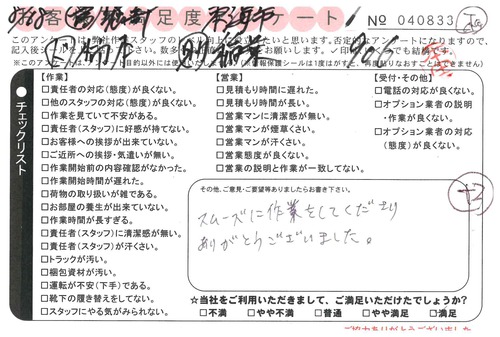 足度 ケート No 040833
このアンケートは弊社作業スタッフのトレベル向上に役立たいと思います。否定的なアンケートになりますので、
【作業】
□責任者の対応(態度)が良くない。
□他のスタッフの対応(態度)が良くない。
□作業を見ていて不安がある。
□責任者(スタッフ)に好感が持てない。
□お客様への挨拶が出来ていない。
□ご近所への挨拶・気遣いが無い。
□作業開始前の内容確認がなかった。
□作業開始時間が遅れた。
□荷物の取り扱いが雑である。
□お部屋の養生が出来ていない。
□作業時間が長すぎる。
□責任者(スタッフ)に清潔感が無い。
□責任者(スタッフ)が汗くさい。
□トラックが汚い。
□梱包資材が汚い。
□運転が不安(下手)である。
□靴下の履き替えをしてない。
□スタッフにやる気がみられない。
【営業】
□見積もり時間に遅れた。
□見積もり時間が長い。
□営業マンに清潔感が無い。
□営業マンが煙草くさい。
□営業マンが汗くさい。
□営業態度が良くない。
□営業の説明と作業が一致してない。
【受付・その他】
□電話の対応が良くない。
□オプション業者の説明
・作業が良くない。
□オプション業者の対応
(態度)が良くない。
チェックリスト
その他、ご意見・ご要望等ありましたらお書き下さい。
スムーズに作業をしてくださり
ありがとうございました。
☆当社をご利用いただきまして、ご満足いただけたでしょうか?
□不満 □やや不満 □普通 □やや満足 □満足
ご協力ありがとうございました